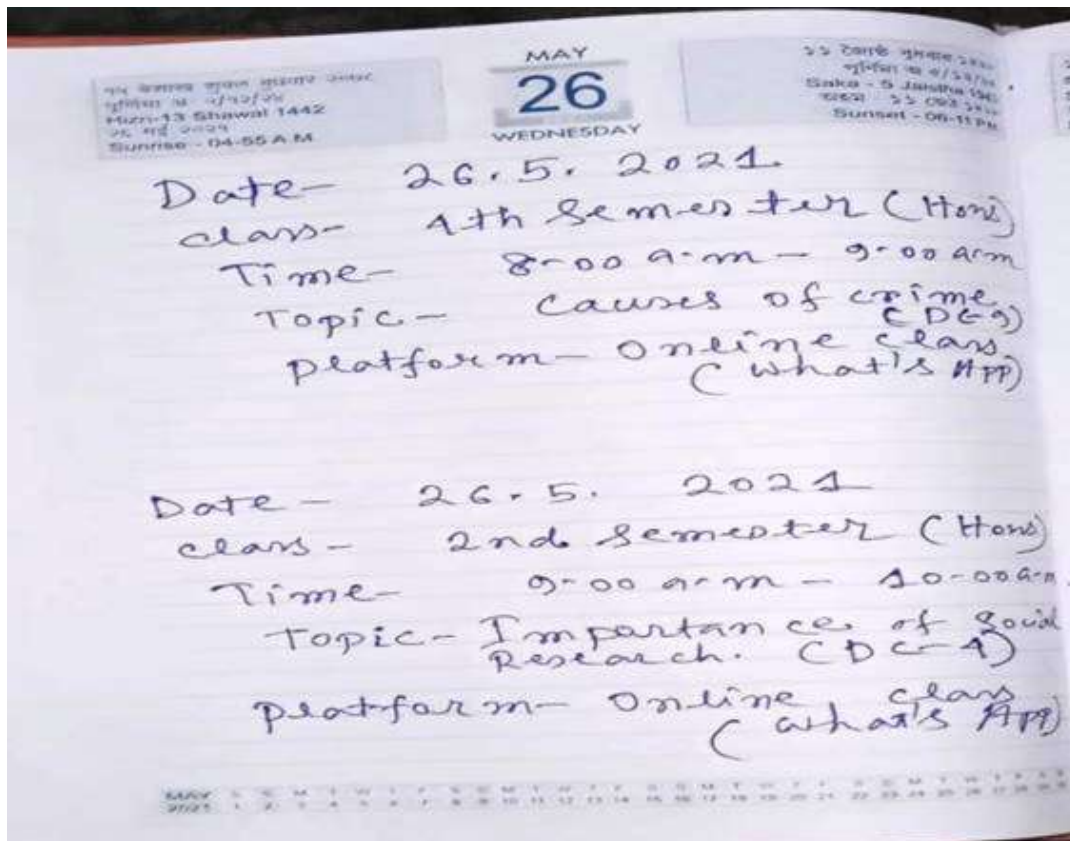 MAY
26
WEDNESDAY
Hizri-13 Shawal 1442
२६ मई २०२१
Sunrise - 04-55 A.M
Saka - 5 Jaistha
Sunset - 06-11 PM
Date- 26.5.2021
class- 4th Semester (Hons)
Time- 8-00 a.m - 9-00 a.m
Topic- Causes of crime
(DC-9)
Platform- Online class
(What's App)
Date- 26.5.2021
class- 2nd Semester (Hons)
Time- 9-00 a.m - 10-00 a.m
Topic- Importance of Social
Research. (DC-4)
Platform- Online class
(What's App)
MAY
2021